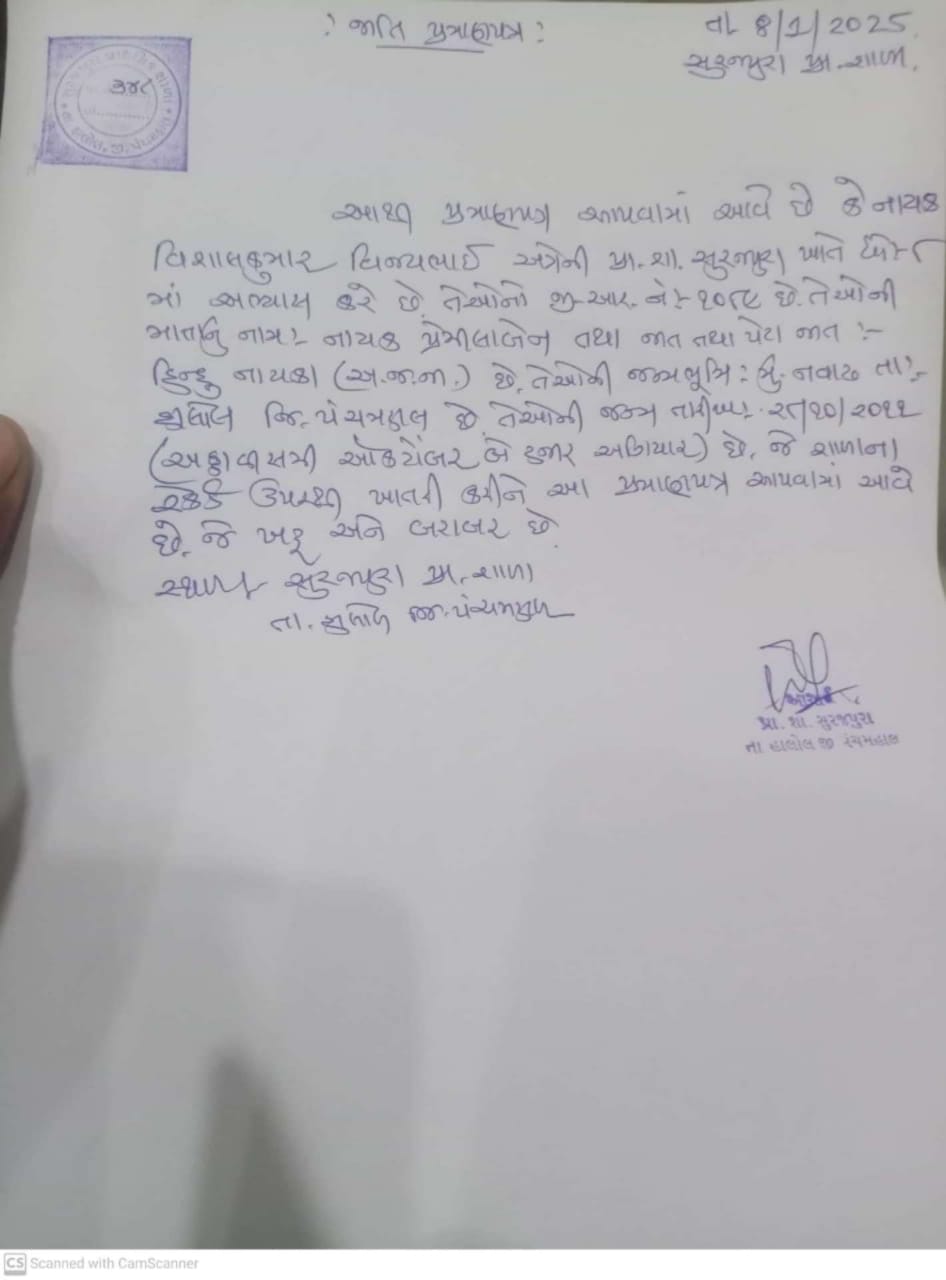 : જાતિ પ્રમાણપત્ર :
તા 8/1/2025.
સુરજપુરા પ્રા.શાળા.
૩૪૮
આથી પ્રમાણપત્ર આપવામાં આવે છે કે નાયક
વિશાલકુમાર વિજયભાઈ અત્રેની પ્રા.શા. સુરજપુરા ખાતે ધોરણ
માં અભ્યાસ કરે છે. તેઓનો જી.આર. નં:- ૧૦૮૯ છે. તેઓની
માતાનું નામ:- નાયક પ્રેમીલાબેન તથા જાત તથા પેટા જાત :-
હિન્દુ નાયકા (અ.જ.જા.) છે. તેઓની જન્મભૂમિ: મુ. નવાઢ તા:-
હાલોલ જિ. પંચમહાલ છે. તેઓની જન્મ તારીખ: ૨૮/૧૦/૨૦૧૧
(અઠ્ઠાવીસમી ઓક્ટોબર બે હજાર અગિયાર) છે. જે શાળાના
રેકર્ડ ઉપરથી ખાતરી કરીને આ પ્રમાણપત્ર આપવામાં આવે
છે. જે ખરૂ અને બરાબર છે.
સ્થળ:- સુરજપુરા પ્રા. શાળા
તા. હાલોલ જિ. પંચમહાલ
આચાર્ય
પ્રા. શા. સુરજપુરા
તા હાલોલ જી પંચમહાલ
CS Scanned with CamScanner